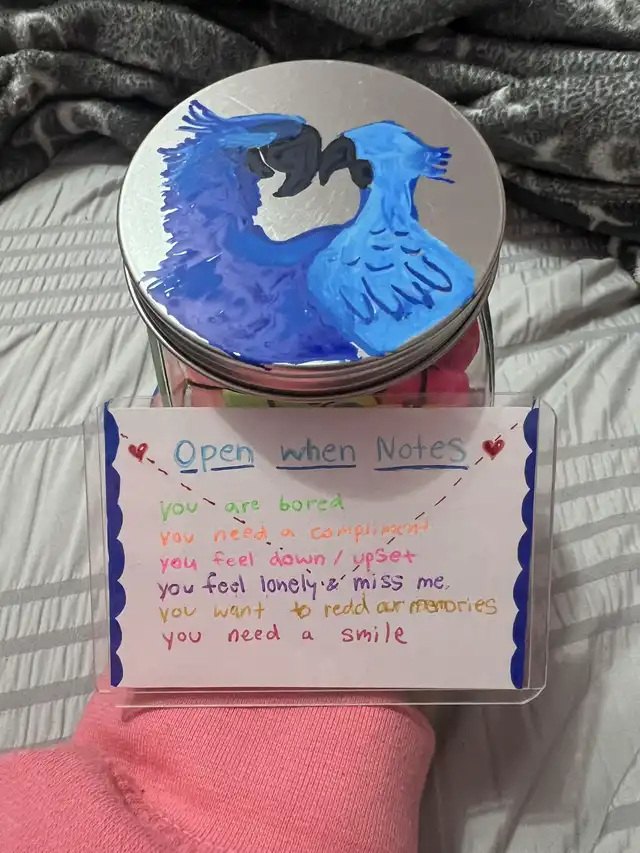 Open when Notes
you are bored
you need a compliment
you feel down / upset
you feel lonely & miss me.
you want to redd our memories
you need a smile